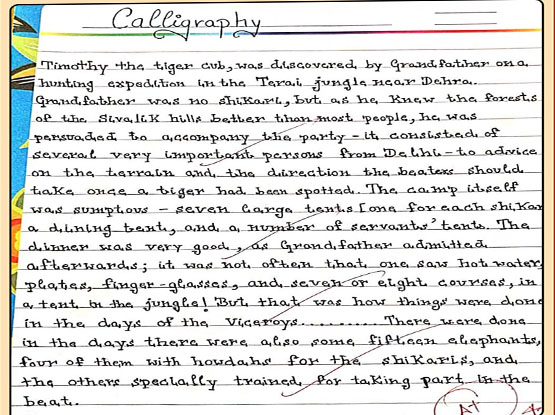 Calligraphy
Timothy the tiger cub, was discovered by Grandfather on a
hunting expedition in the Terai jungle near Dehra.
Grandfather was no shikari, but as he knew the forests
of the Sivalik hills better than most people, he was
persuaded to accompany the party - it consisted of
several very important persons from Delhi - to advice
on the terrain and the direction the beaters should
take once a tiger had been spotted. The camp itself
was sumptous - seven large tents [one for each shikar
a dining tent, and a number of servants' tents. The
dinner was very good, as Grandfather admitted
afterwards; it was not often that one saw hot water,
plates, finger-glasses, and seven or eight courses, in
a tent in the jungle! But that was how things were done
in the days of the Viceroys.......... There were done
in the days there were also some fifteen elephants,
four of them with howdahs for the shikaris, and
the others specially trained for taking part in the
beat.
A+